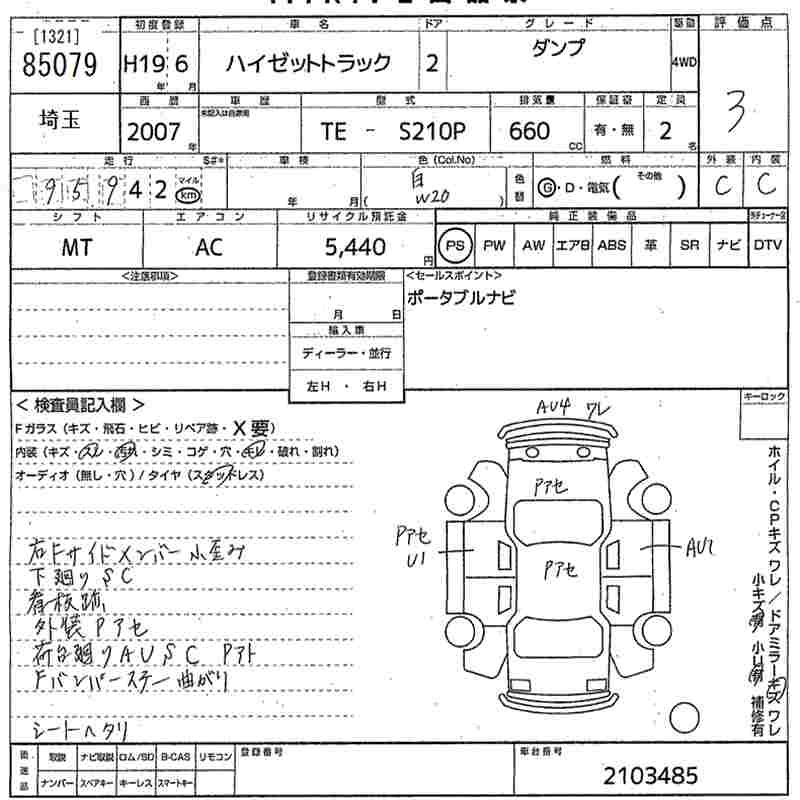 [1321]
85079
初度登録 車名 ドア グレード 駆動 評価点
H19 6 ハイゼットトラック 2 ダンプ 4WD
年 月
埼玉
西暦 車歴 型式 排気量 保証書 定員
2007 年 TE - S210P 660 CC 有・無 2 名
3
走行 S#* 車検 色 (Col.No) 燃料 外装 内装
95942 マイル km 年 月 白 W20 ( ) 色替 G・D・電気( その他 ) C C
シフト エアコン リサイクル預託金 純正装備品
MT AC 5,440 円 PS PW AW エアB ABS 革 SR ナビ DTV
<注意事項> 登録書類有効期限 <セールスポイント>
月 日 ポータブルナビ
輸入車
ディーラー・並行
左H ・ 右H
< 検査員記入欄 >
Fガラス (キズ・飛石・ヒビ・リペア跡・X要)
内装 (キズ・スレ・汚れ・シミ・コゲ・穴・モレ・破れ・割れ)
オーディオ (無し・穴) / タイヤ (スタッドレス)
右Fサイドメンバー小歪み
下廻りSC
看板跡
外装Pアセ
荷台廻りAUSC Pアト
Fバンパーステー曲がり
シートヘタリ
AU4 ワレ
Pアセ
Pアセ
U1
AU1
Pアセ
キーロック
ホイル・CPキズ ワレ / ドアミラーキズ ワレ
補修有
後送品 取説 ナビ取説 ロム/SD B-CAS リモコン 登録番号 車台番号
ナンバー スペアキー キーレス スマートキー 2103485